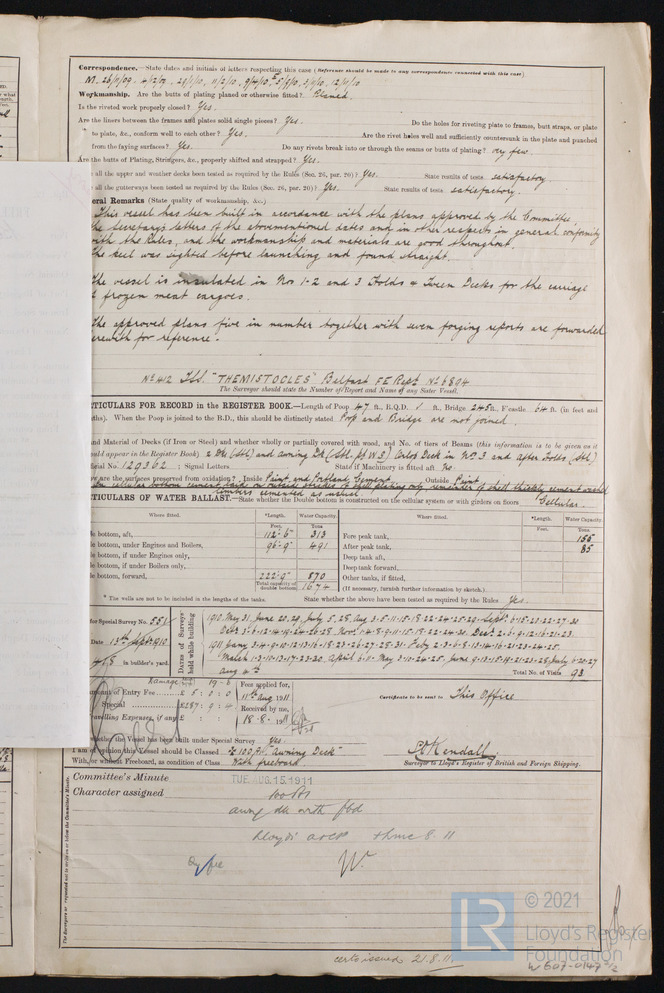 Correspondence.—State dates and initials of letters respecting this case (Reference should be made to any correspondence connected with this case)
M. 26/11/09 - 4/2/10 11/2/10, 9/4/10, 5/5/10, 3/9/10, 12/9/10
Workmanship. Are the butts of plating planed or otherwise fitted? Planed.
Is the riveted work properly closed? Yes.
Are the liners between the frames and plates solid single pieces? Yes. Do the holes for riveting plate to frames, butt straps, or plate
to plate, &c., conform well to each other? Yes. Are the rivet holes well and sufficiently countersunk in the plate and punched
from the faying surfaces? Yes. Do any rivets break into or through the seams or butts of plating? very few
Are the butts of Plating, Stringers, &c., properly shifted and strapped? Yes.
all the upper and weather decks been tested as required by the Rules (Sec. 26, par. 20)? Yes. State results of tests satisfactory
all the gutterways been tested as required by the Rules (Sec. 26, par. 20)? Yes. State results of tests satisfactory.
eral Remarks (State quality of workmanship, &c.)
This vessel has been built in accordance with the plans approved by the Committee
he Secretary's letters of the abovementioned dates and in other respects in general conformity
with the Rules, and the workmanship and materials are good throughout.
The keel was sighted before launching and found straight.
The vessel is insulated in Nos 1-2 and 3 Holds & Tween Decks for the carriage
of frozen meat cargoes.
The approved plans five in number together with seven forging reports are forwarded
erewith for reference.
No 412 "THEMISTOCLES" Belfast F.E. Rept No 6894
The Surveyor should state the Number of Report and Name of any Sister Vessel.
RTICULARS FOR RECORD in the REGISTER BOOK.—Length of Poop 47 ft., R.Q.D. / ft., Bridge 245 ft., F'castle 64 ft. (in feet and
ths). When the Poop is joined to the B.D., this should be distinctly stated Poop and Bridge are not joined.
and Material of Decks (if Iron or Steel) and whether wholly or partially covered with wood, and No. of tiers of Beams (this information is to be given as it
ould appear in the Register Book) 2 Dks (Stl) and awning Dk (Stl. pt W.S) Orlop Deck in No 3 and after Holds (Stl)
icial No. 129362 ; Signal Letters State if Machinery is fitted aft No
w are the surfaces preserved from oxidation? Inside Paint and Portland Cement. Outside Paint
timbers cemented as usual.
RTICULARS OF WATER BALLAST.—State whether the Double bottom is constructed on the cellular system or with girders on floors Cellular.
Where fitted. *Length. Water Capacity. Where fitted. *Length. Water Capacity.
Feet. Tons. Feet. Tons.
le bottom, aft, 112'-6" 313 Fore peak tank, 155
le bottom, under Engines and Boilers, 96'-9" 491 After peak tank, 85
le bottom, if under Engines only, Deep tank aft,
le bottom, if under Boilers only, Deep tank forward,
le bottom, forward, 222'-9" 870 Other tanks, if fitted,
Total capacity of double bottom 1674 (If necessary, furnish further information by sketch.)
* The wells are not to be included in the lengths of the tanks. State whether the above have been tested as required by the Rules Yes.
for Special Survey No. 551
Date 13th Septr 1910
418 in builder's yard.
Dates of Surveys held while building
1910 May 31, June 20.29, July 5.28, Aug 3.5.11.15.18.22.24.25.29, Septr 6.15.21.22.27.30
Octr 3.6.12.14.19.24.26.28 Novr 1.4.8.9.11.15.18.22.24.30 Decr 2.6.9.12.16.21.23.
1911 Jany 3.4.9.10.12.13.16.18.23.26.27.28.31. Feby 2.3.6.8.13.14.16.21.23.24.25.
March 1.3.10.13.17.23.30 April 6.8. May 3.10.24.25, June 9.13.15.19.21.23.28 July 6.20.27
Aug 4th Total No. of Visits 93
Damage 19 - 6
mount of Entry Fee £ 5 : 0 : 0
Special £287 : 0 : 4
avelling Expenses, if any £ : :
Fees applied for,
11th Aug 1911
Received by me,
18.8.1911
Certificate to be sent to This Office
whether the Vessel has been built under Special Survey Yes
I am of opinion this Vessel should be Classed 100 A1 "awning Deck"
With, or without Freeboard, as condition of Class With freeboard
Kendall
Surveyor to Lloyd's Register of British and Foreign Shipping.
Committee's Minute TUE. AUG. 15. 1911
Character assigned 100 A1
awng dk with fbd
Lloyd's 8.11
W.
certs issued 21.8.11
© 2021
LR
Lloyd's Register
Foundation
W607-0147 2/2